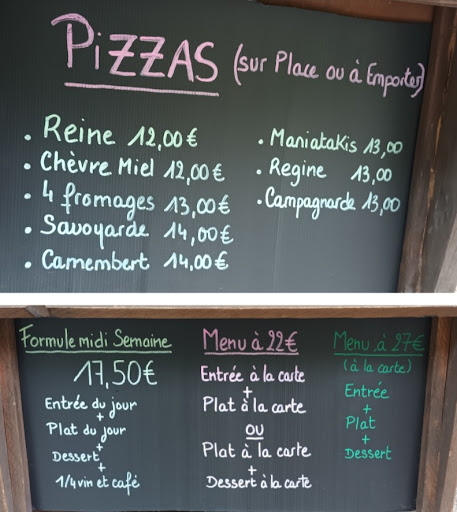 PiZZAS (sur Place ou à Emporter)
• Reine 12,00 €
• Chèvre Miel 12,00 €
• 4 fromages 13,00 €
• Savoyarde 14,00 €
• Camembert 14,00 €
• Maniatakis 13,00
• Regine 13,00
• Campagnarde 13,00
Formule midi Semaine
17,50€
Entrée du jour
+
Plat du jour
+
Dessert
+
1/4 vin et café
Menu à 22€
Entrée à la carte
+
Plat à la carte
OU
Plat à la carte
+
Dessert à la carte
Menu à 27€
(à la carte)
Entrée
+
Plat
+
Dessert